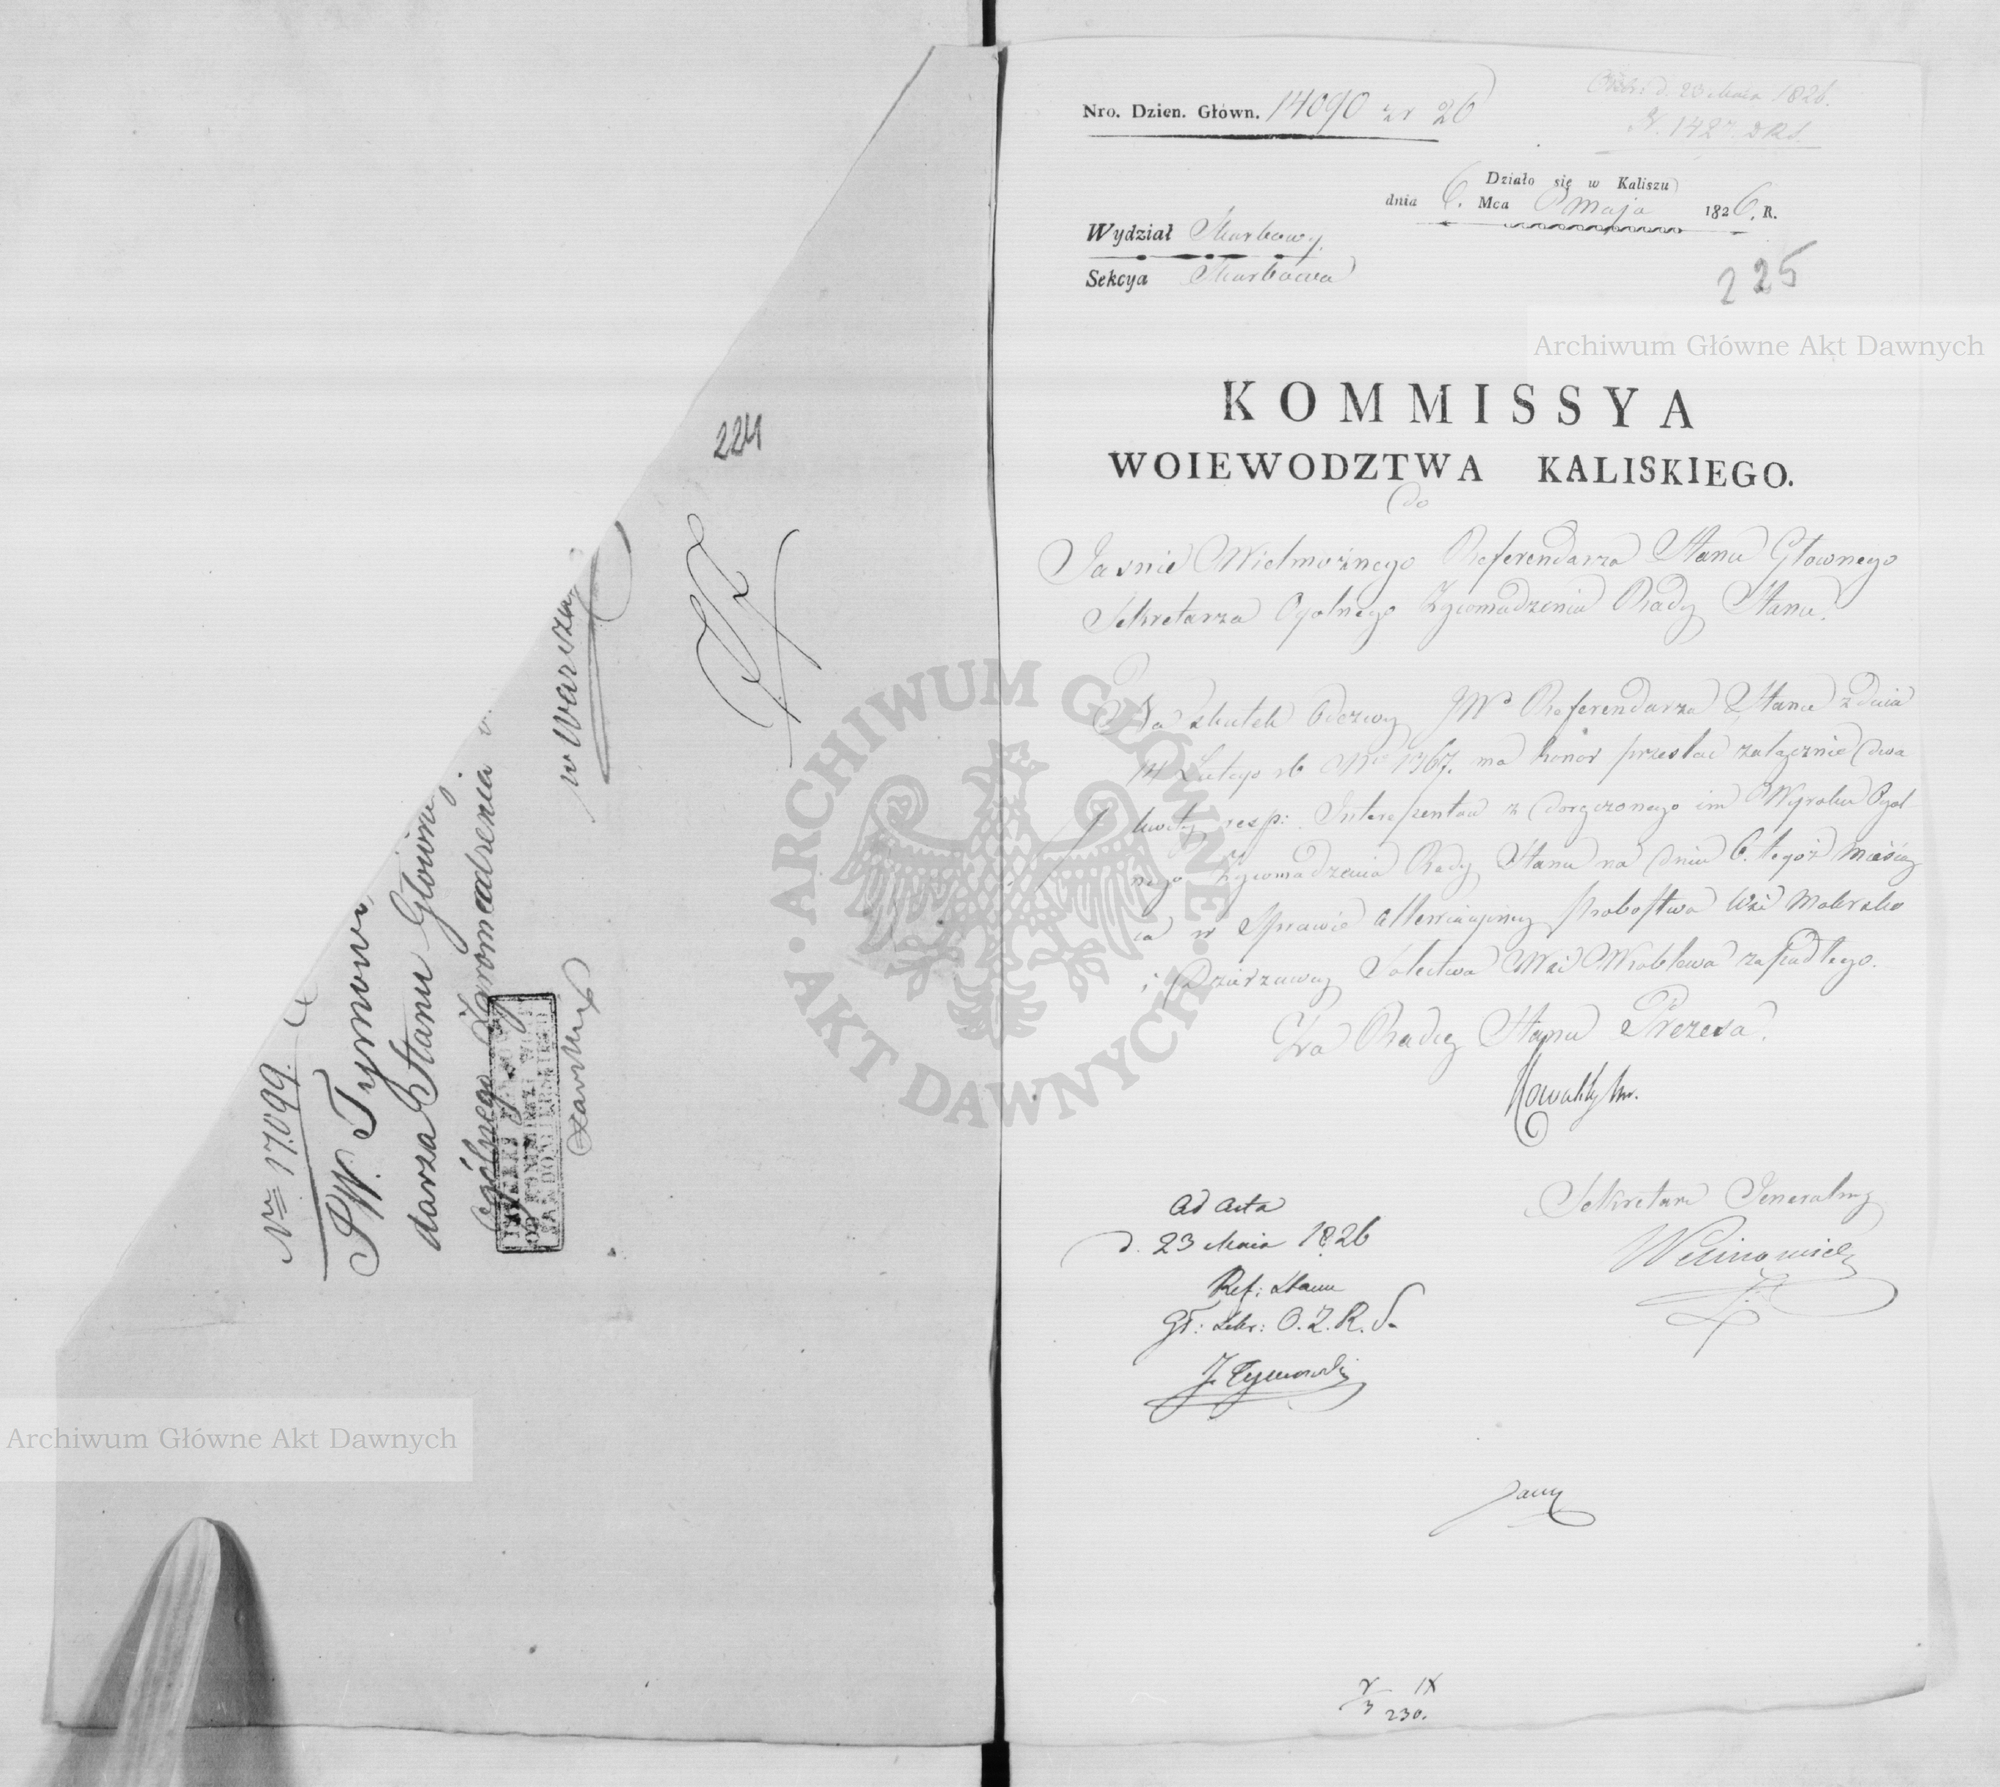 224
Nro 17.099.
JW. Tymowi
darza Stanu Główne
Ogólnego Zgromadzenia
w Warsza
Nro. Dzien. Główn. 14090 26
d. 23 Maia 1826.
N. 1427. DRS.
Działo się w Kaliszu
dnia 6. Mca Maja 1826. R.
Wydział Skarbowy.
Sekcya Skarbowa
225
Archiwum Główne Akt Dawnych
KOMMISSYA
WOIEWODZTWA KALISKIEGO.
do
Jasnie Wielmożnego Referendarza Stanu Głownego
Sekretarza Ogolnego Zgromadzenia Rady Stanu.
Na skutek Odezwy JWo Referendarza Stanu z dnia
14 Lutego rb No 1367. ma honor przesłac załącznie dwa
kwity resp: Interessentów z doręczonego im Wyroku Ogol
nego Zgromadzenia Rady Stanu na dniu 6. tegoż Miesią
ca w Sprawie Probostwa Wsi
i Dzierzawcy Sołectwa Wsi Wroblewa zapadłego.
Za Radcę Stanu Prezesa.
Sekretarz Jeneralny
Ad Acta
d. 23 Maia 1826
Ref: Stanu
Gł: Sekr: O. Z. R. S.
J. Tymowski
IX
3 230.
ARCHIWUM GŁÓWNE AKT DAWNYCH
Archiwum Główne Akt Dawnych